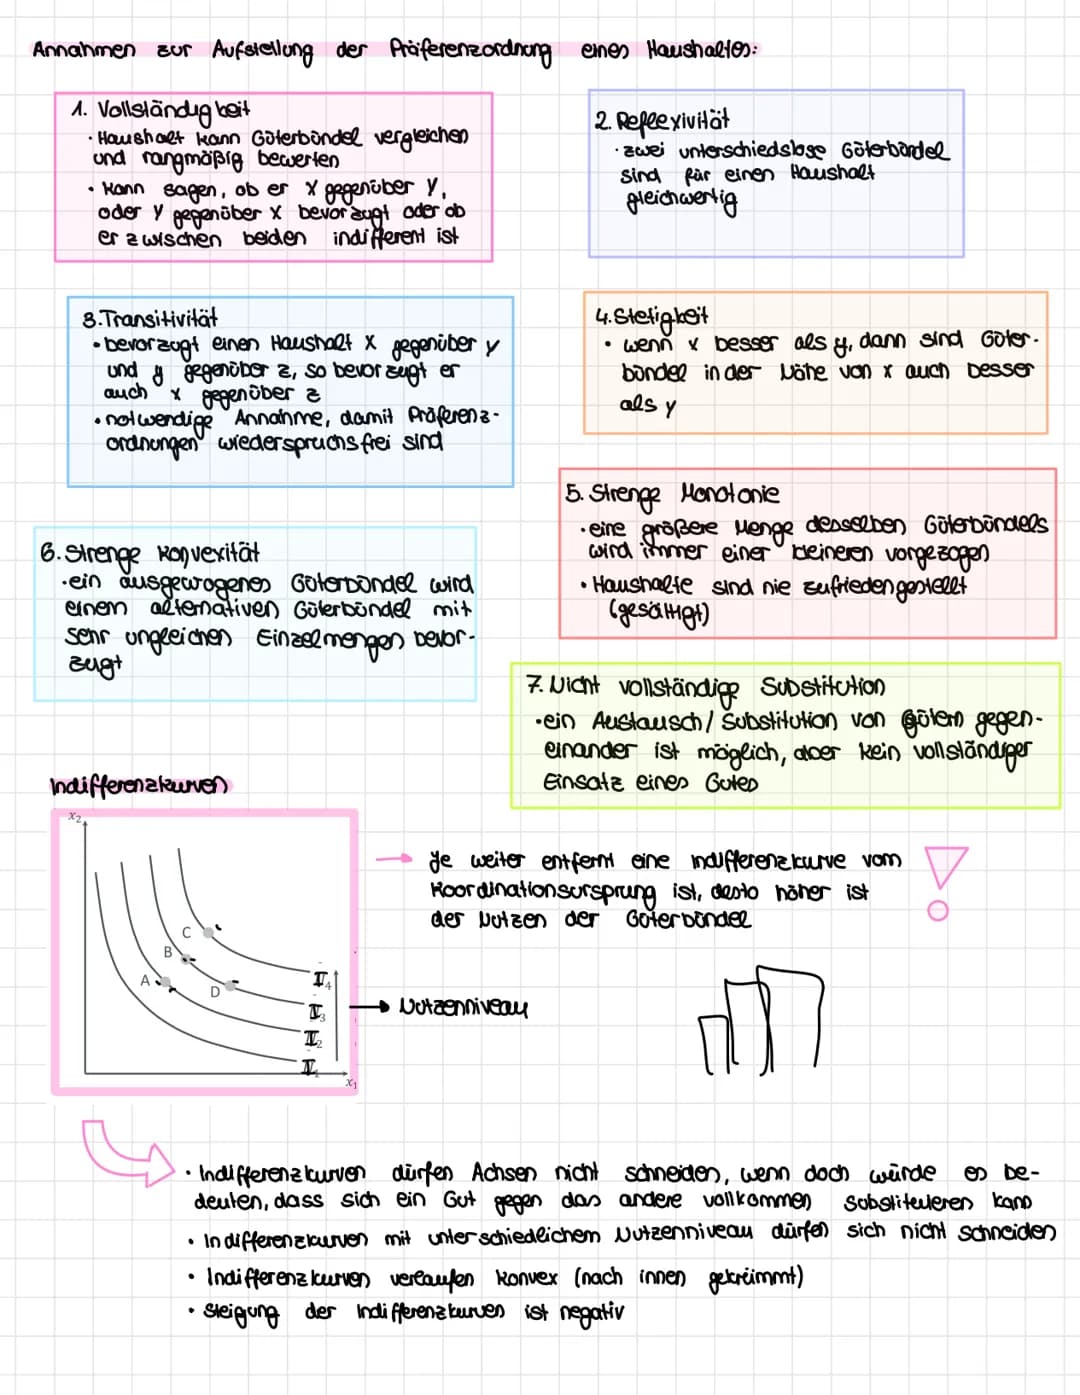 Annahmen zur Aufstellung der Präferenzordnung eines Haushaltes:
1. Vollständigkeit
· Haushalt kann Güterbündel vergleichen
und rangmäßig bewerten
• kann sagen, ob er x gegenüber y,
oder y gegenüber x bevorzugt oder ob
er zwischen beiden indifferent ist
2. Reflexivität
· zwei unterschiedslose Güterbündel
sind für einen Haushalt
gleichwertig
3. Transitivität
• bevorzugt einen Haushalt x gegenüber y
und y gegenüber z, so bevorzugt er
auch x gegenüber z
• notwendige Annahme, damit Präferenz-
ordnungen wiederspruchsfrei sind
4. Stetigkeit
• wenn x besser als y, dann sind Güter-
bündel in der Nähe von x auch besser
als y
5. Strenge Monotonie
· eine größere Menge desselben Güterbündels
wird immer einer kleineren vorgezogen
• Haushalte sind nie zufriedengestellt
(gesättigt)
6. Strenge Konvexität
· ein ausgewogenes Güterbündel wird
einem alternativen Güterbündel mit
sehr ungleichen Einzelmengen bevor-
zugt
7. Nicht vollständige Substitution
• ein Austausch / Substitution von Gütern gegen-
einander ist möglich, aber kein vollständiger
Einsatz eines Gutes
Indifferenzkurven
x2
C
B
A
D
I4
I3
I2
I1
x1
→ Je weiter entfernt eine Indifferenzkurve vom
Koordinationsursprung ist, desto höher ist
der Nutzen der Güterbündel
→ Nutzenniveau
• Indifferenzkurven dürfen Achsen nicht schneiden, wenn doch würde es be-
deuten, dass sich ein Gut gegen das andere vollkommen substituieren kann
• Indifferenzkurven mit unterschiedlichem Nutzenniveau dürfen sich nicht schneiden
• Indifferenzkurven verlaufen konvex (nach innen gekrümmt)
• Steigung der Indifferenzkurven ist negativ